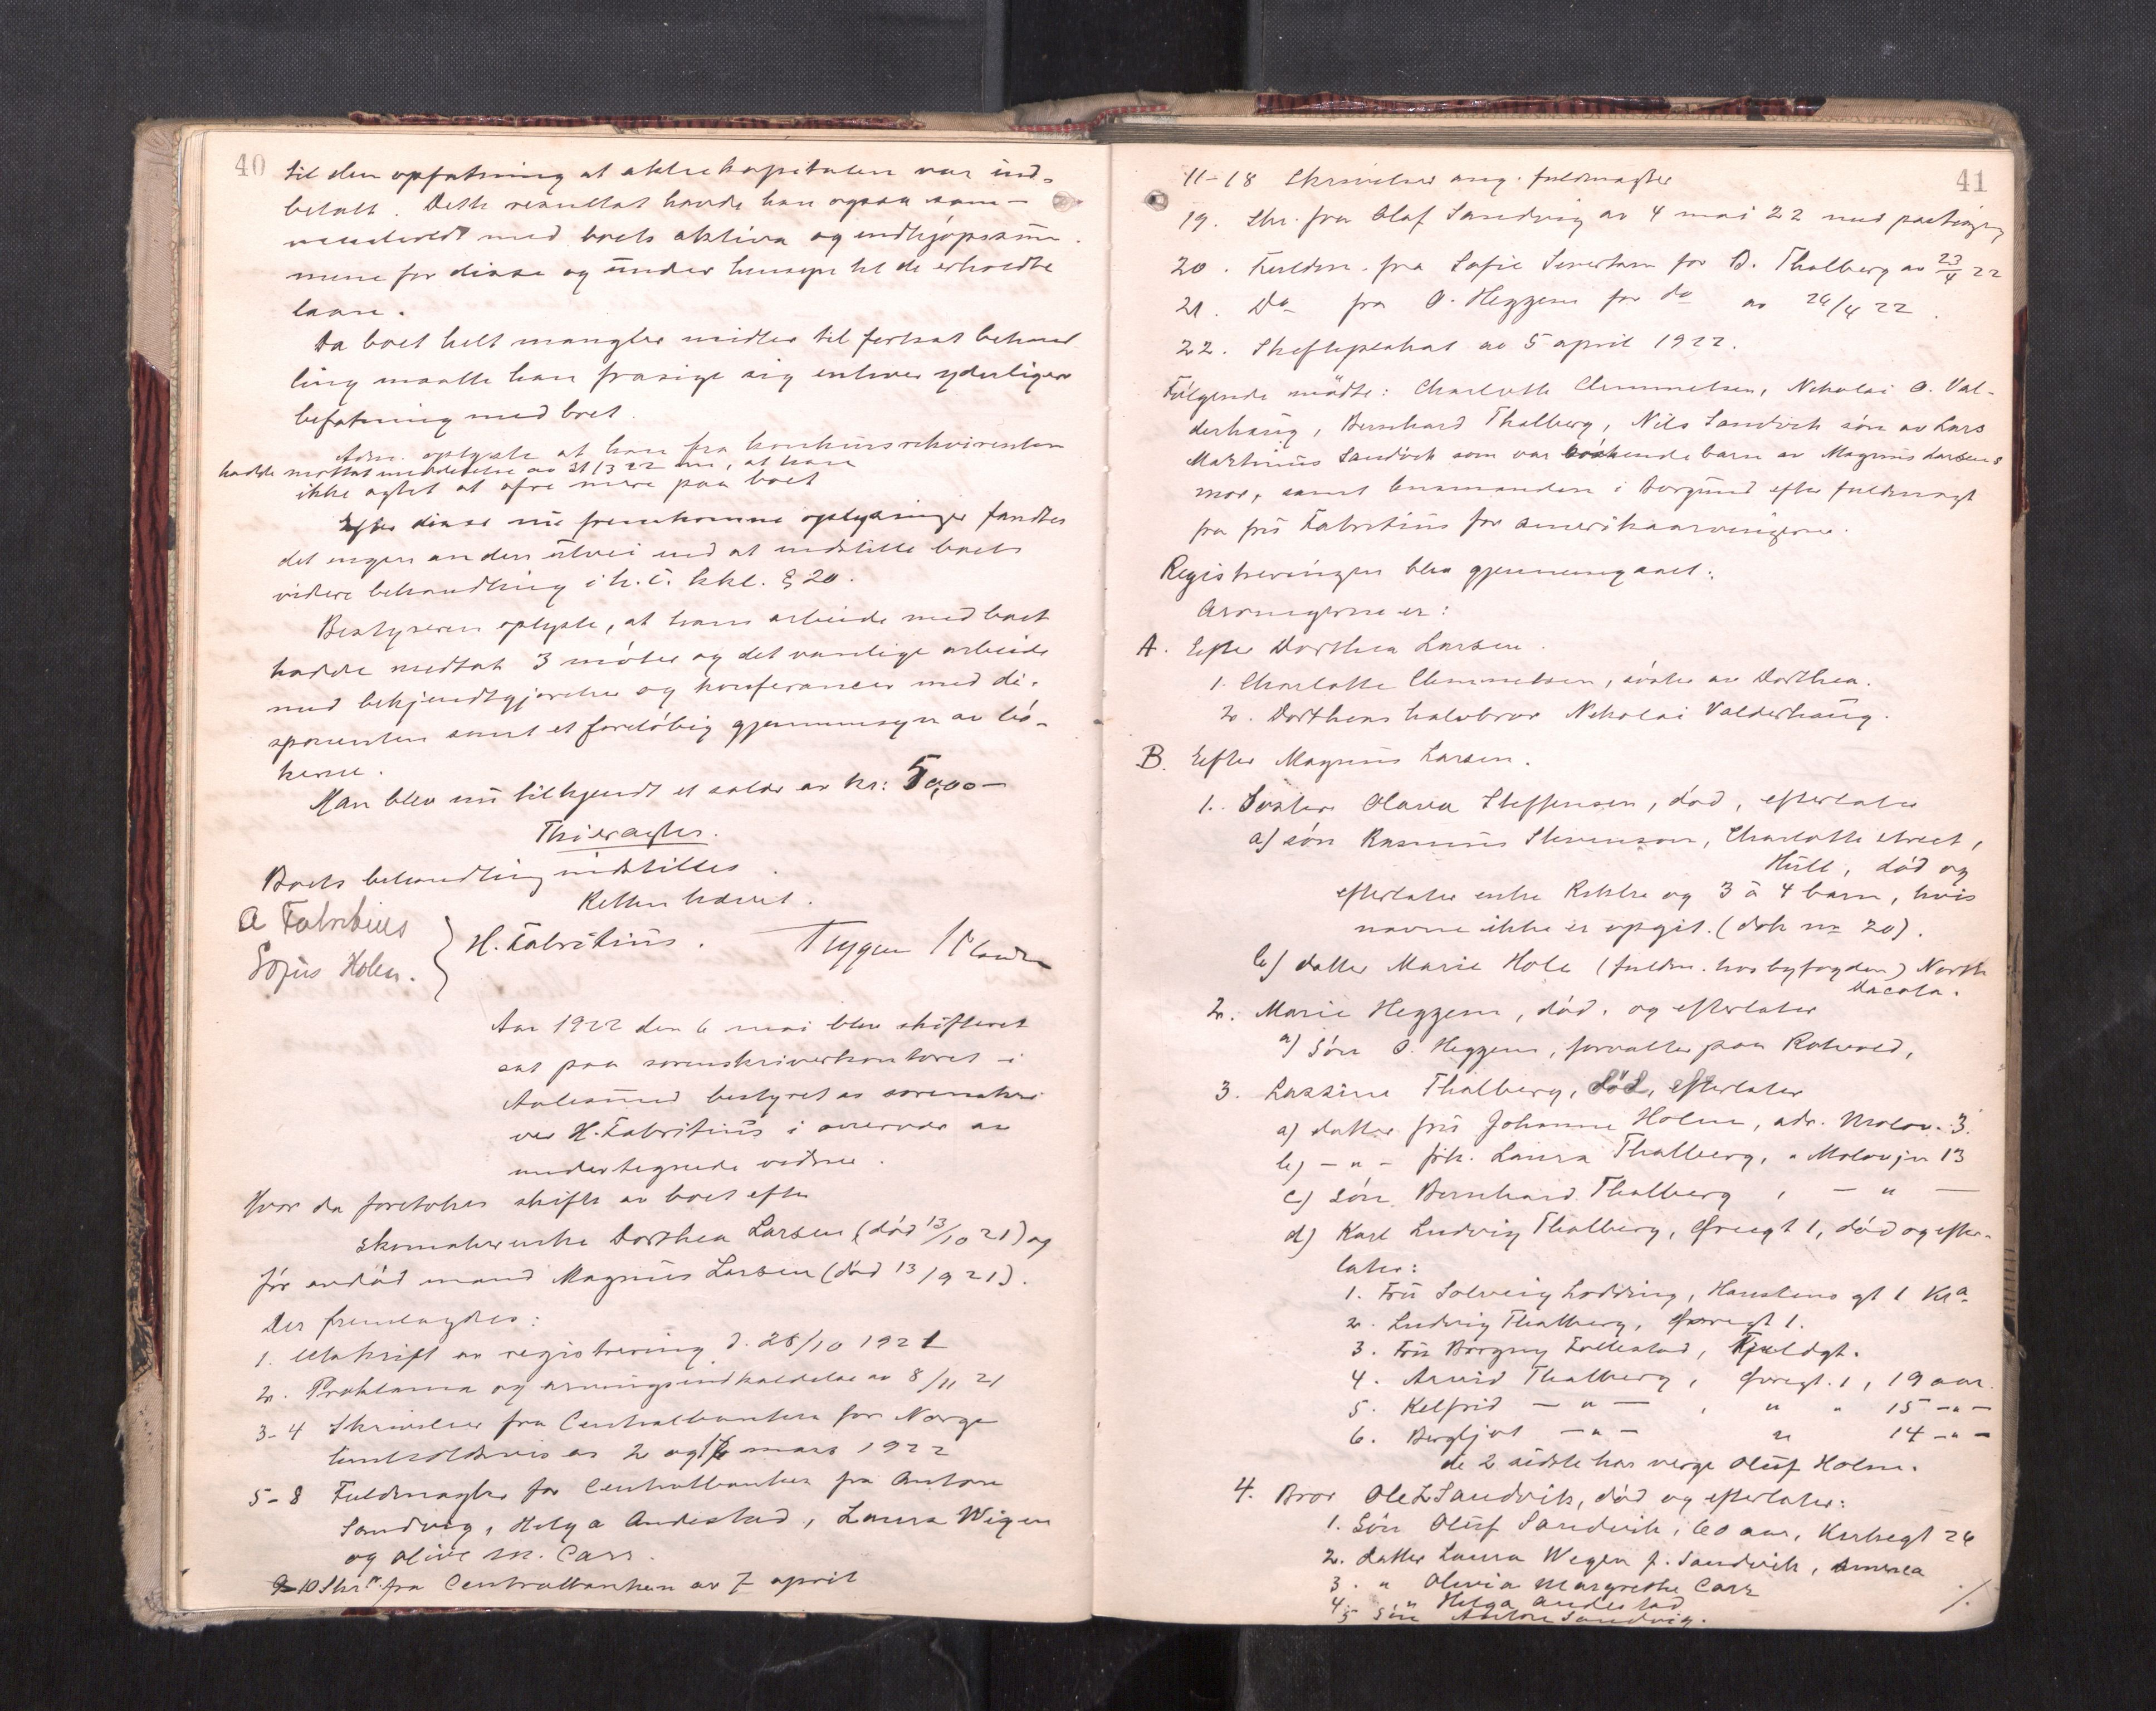 40
til den opfatning at aktiekapitalen var ind-
betalt. Dette resultat havde han ogsaa sam-
menholdt med boets aktiva og indkjöpssum-
mene for disse og under hensyn til de erholdte
laan.
Da boet helt mangler midler til fortsat behand
ling maatte han frasige sig enhver yderligere
befatning med boet.
Adm. oplyste at han fra konkursrekvirenten
hadde mottat meddelelse av 31/3 22 om, at han
ikke agtet at ofre mere paa boet
Efter disse nu fremkomne oplysninger fandtes
det ingen anden utvei end at indstille boets
videre behandling i h. t. kkl. § 20.
Bestyreren oplyste, at hans arbeide med boet
hadde medtat 3 möter og det vanlige arbeide
med bekjendtgjörelser og konferancer med di-
sponenten samt et forelöbig gjennemsyn av bö-
kerne.
Man blev nu tilkjendt et salær av kr: 50,00 –
Thi eragtes:
Boets behandling indstilles.
Retten hævet.
A Fabritius
Sofus Holen. H. Fabritius. Trygve
Aar 1922 den 6 mai blev skifteret
sat paa sorenskriverkontoret i
Aalesund bestyret av sorenskri-
ver H. Fabritius i overvær av
undertegnede vidner.
Hvor da foretokes skifte av boet efter
skomakerenke Dorthea Larsen (död 13/10 21) og
för avdöd mand Magnus Larsen (död 13/9 21).
Der fremlagdes:
1. Utskrift av registrering d. 28/10 1921
2. Proklama og arvingsindkaldelse av 8/11 21
3-4 Skrivelser fra Centralbanken for Norge
henholdsvis av 2 og 16 mars 1922
5-8 Fuldmagter for Centralbanken fra Anton
Sandvig, Helga Andestad, Laura Wigen
og Olive M. Carr.
9-10 Skr. fra Centralbanken av 7 april
41
11-18 Skrivelser ang. fuldmagter
19. Skr. fra Olaf Sandvig av 4 mai 22 med paategning
20. Fuldm. fra Sofie Sivertsen for B. Thalberg av 23/4 22
21. Do fra O. Heggem for do av 24/4 22.
22. Skifteplakat av 5 april 1922.
Fölgende mödte: Charlotte Clemmetsen, Nikolai O. Val-
derhaug, Bernhard Thalberg, Nils Sandvik sön av Lars
Martinus Sandvik som var söskendebarn av Magnus Larsens
mor, samt lensmanden i Borgund efter fuldmagt
fra fru Fabritius for amerikaarvingerne.
Registreringen blev gjennemgaaet:
Arvingerne er:
A. Efter Dorthea Larsen.
1. Charlotte Clemmetsen, söster av Dorthea.
2. Dortheas halvbror Nikolai Valderhaug.
B. Efter Magnus Larsen.
1. Söster Olava Steffensen, död, efterlater
a) sön Rasmus Stevenson, Charlotte street,
Hull, död og
efterlater enke Rikke og 3 à 4 barn, hvis
navne ikke er opgit. (dok no 20).
b) datter Marie Hole (fuldm. hos byfogden) North
Dacota.
2. Marie Heggem, död. og efterlater
a) Sön O. Heggem, forvalter paa Rotvold,
3. Lassine Thalberg, död, efterlater
a) datter fru Johanne Holm, adr. Molov. 3.
b) – " – frk. Laura Thalberg, " Molovjn 13
c) Sön Bernhard Thalberg, – " –
d) Karl Ludvig Thalberg, Övregt 1, död og efter-
later:
1. Fru Solveig Lodding, Hausteens gt 1 Kra
2. Ludvig Thalberg, Övregt 1.
3. Fru Borgny Follestad, Kjeldgt.
4. Arvid Thalberg, Övregt. 1, 19 aar.
5. Kelfrid – " – , " " 15 – " –
6. Bergljot – " – " 14 – " –
de 2 sidste har verge Oluf Holm.
4. Bror Ole L Sandvik, död og efterlater:
1. Sön Oluf Sandvik, 60 aar, Kirkegt 26
2. datter Laura Wegen f. Sandvik, Amerea
3. " Olivia Margrethe Carr
4. " Helga Andestad ./.
5 Sön Anton Sandvig.